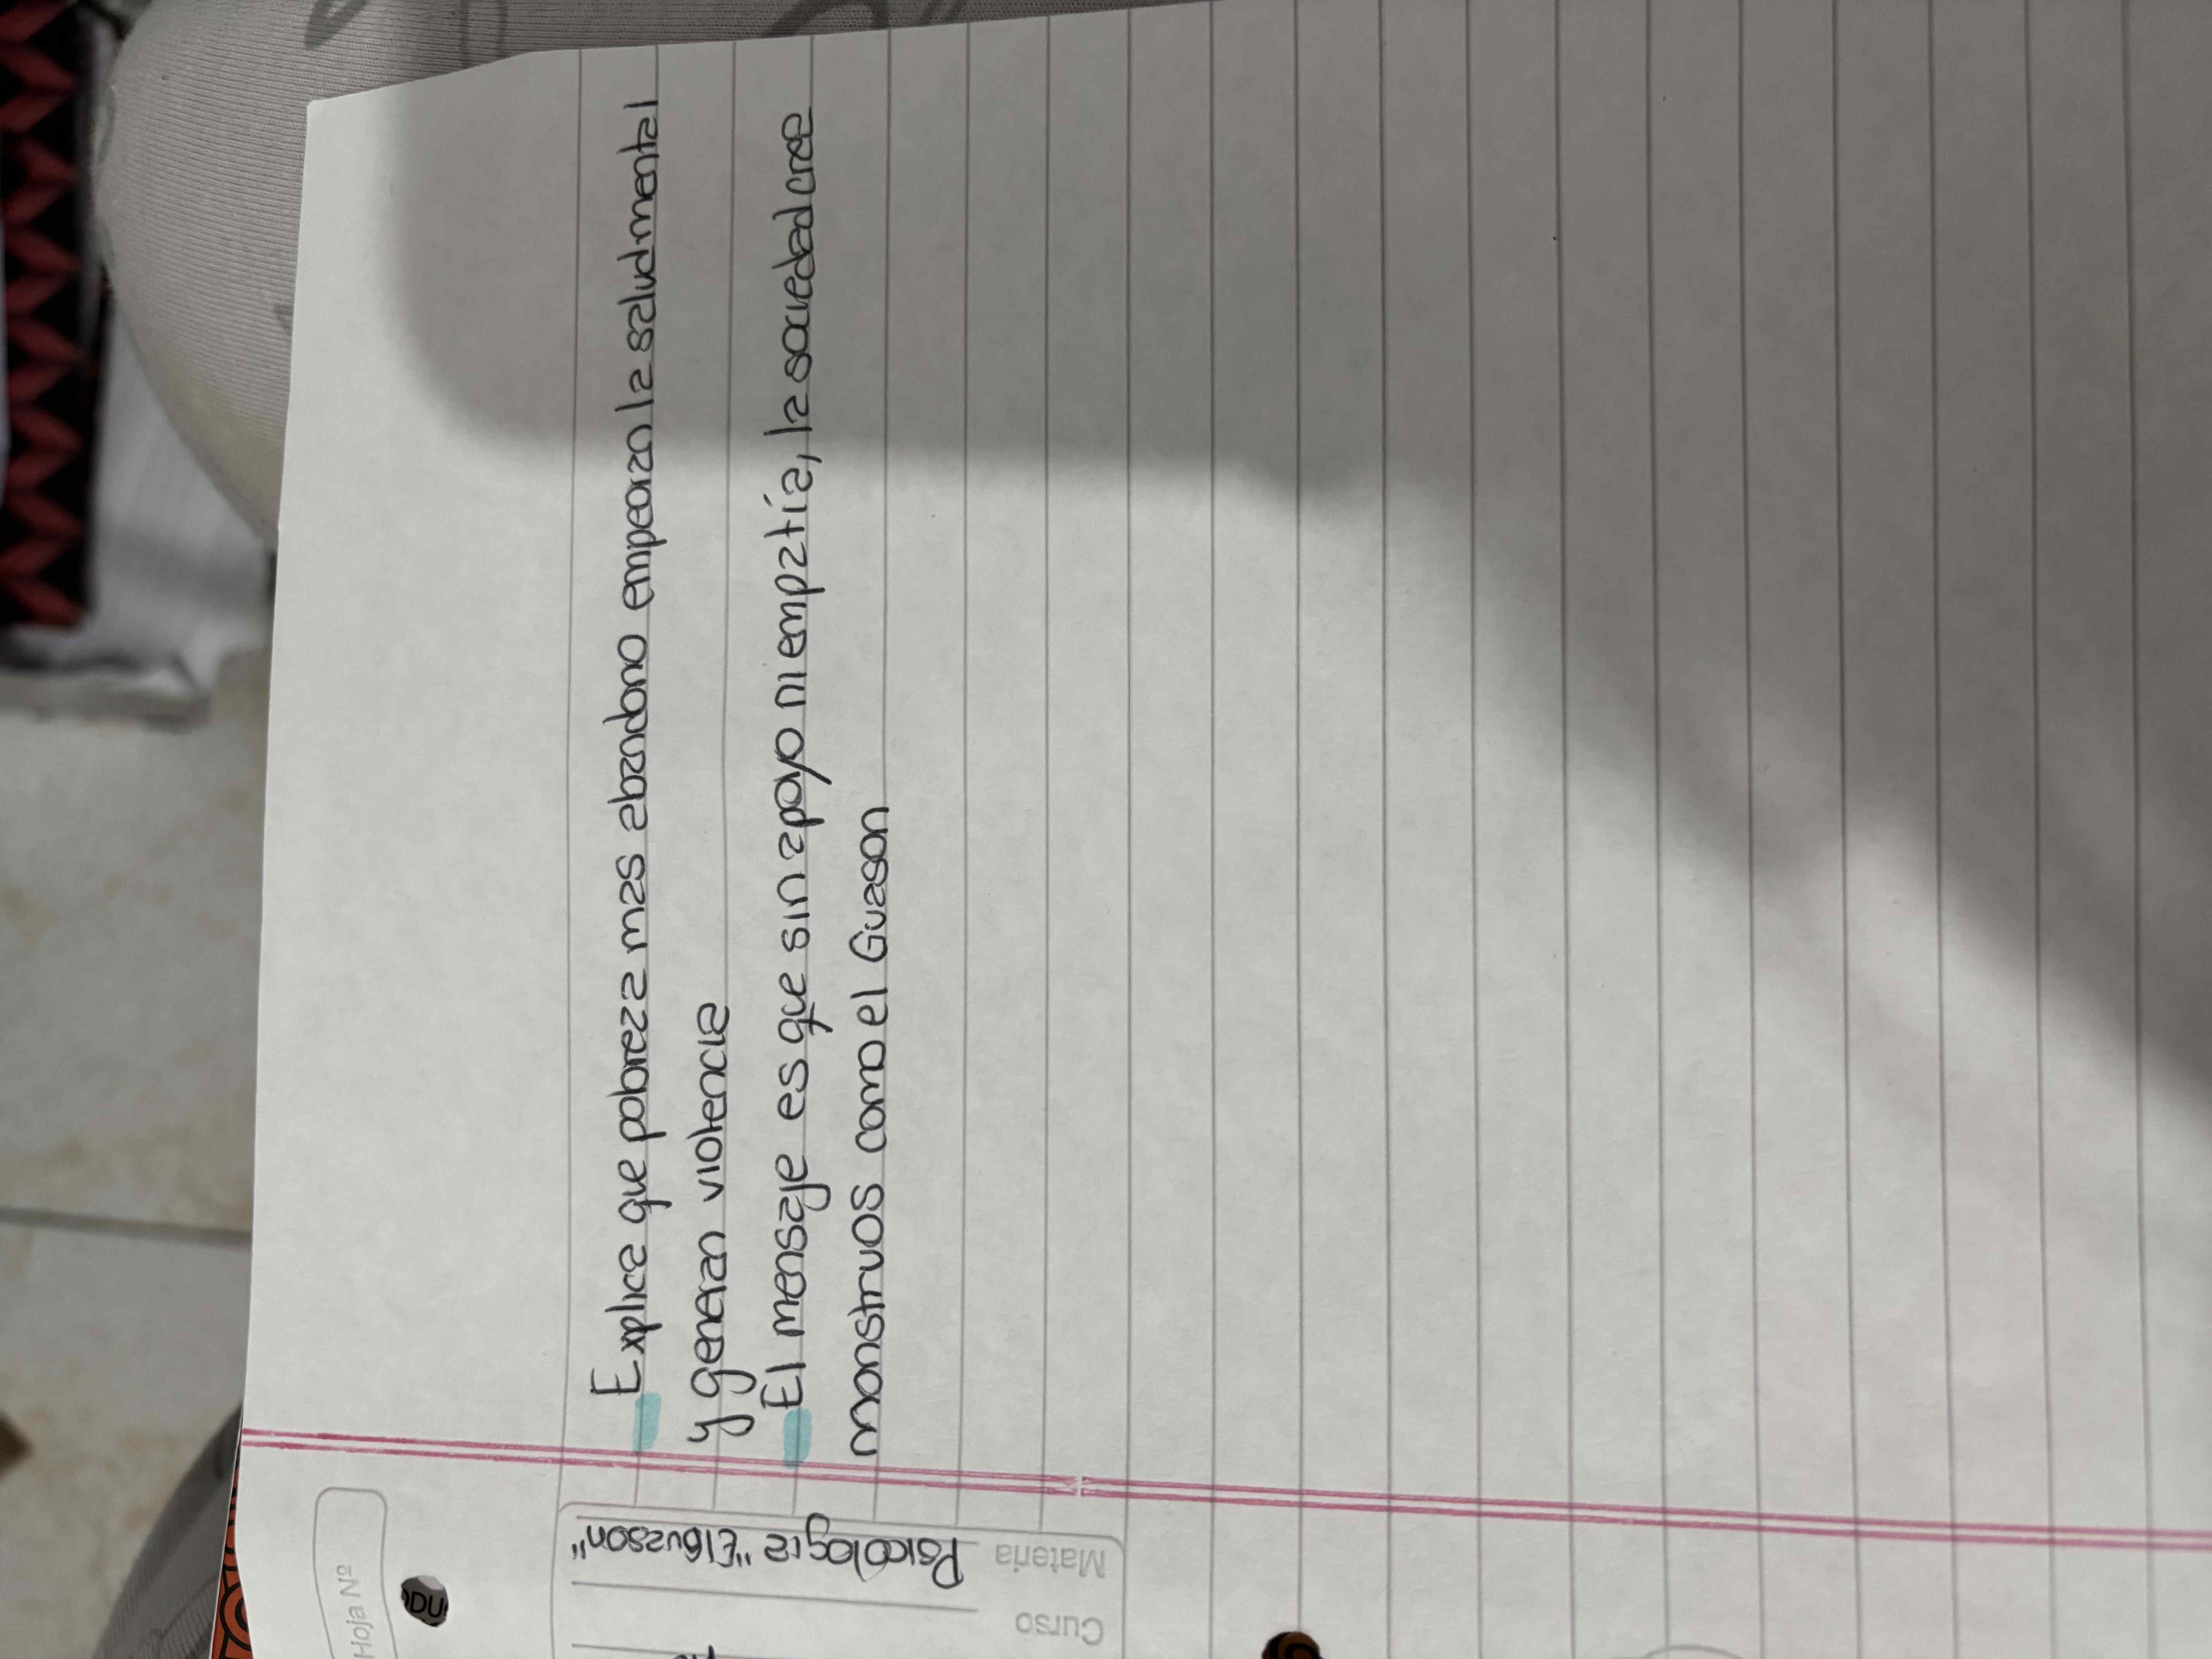 Hoja Nº
Explica que pobreza mas abandono empeoran la salud mental
y generan violencia
El mensaje es que sin apoyo ni empatía, la sociedad cree
monstruos como el Guason
Materia Psicologia "El Guason"
Curso